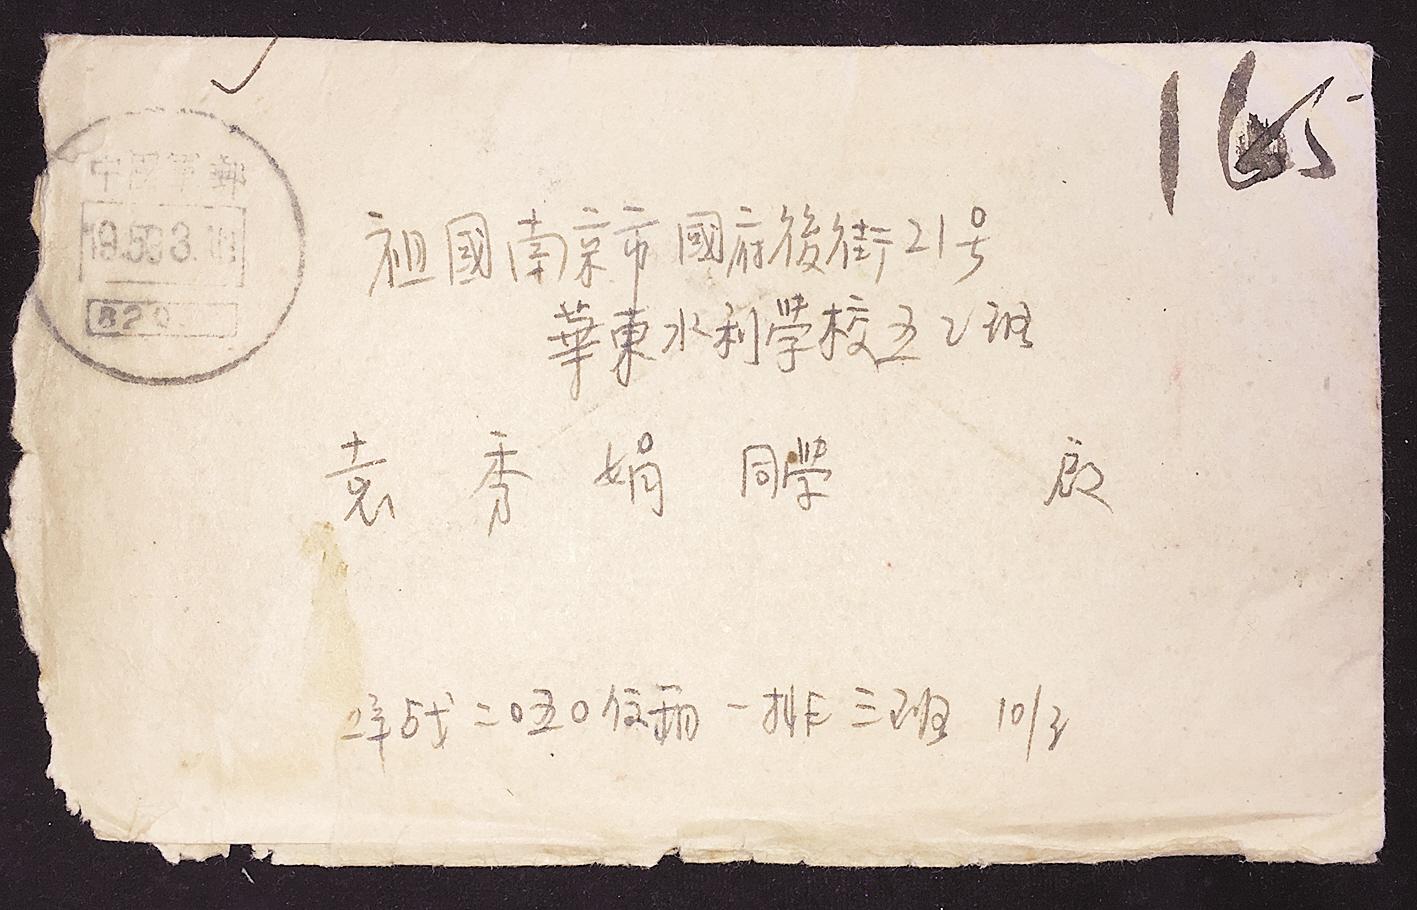 165
中國軍郵
1953.3.
820
祖國南京市國府後街21号
華東水利學校五乙班
袁秀娟同學 啟
二〇五〇信箱一排三班 10/3